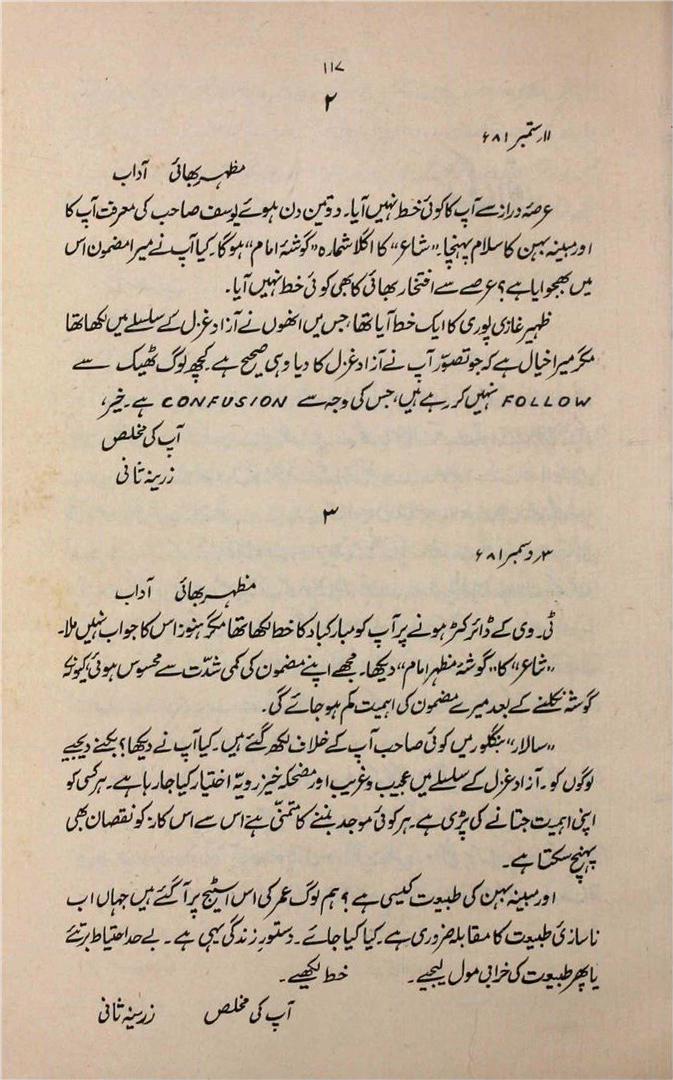 ۱۱۷
۲
۱۱ر ستمبر ۸۱ء
مظہر بھائی آداب
عرصۂ دراز سے آپ کا کوئی خط نہیں آیا۔ دو تین دن ہوئے یوسف صاحب کی معرفت آپ کا
اور مبینہ بہن کا سلام پہنچا۔ ”شاعر“ کا اگلا شمارہ ”گوشۂ امام“ ہوگا۔ کیا آپ نے میرا مضمون اس
میں بھجوایا ہے؟ عرصے سے افتخار بھائی کا بھی کوئی خط نہیں آیا۔
ظہیر غازی پوری کا ایک خط آیا تھا، جس میں انھوں نے آزاد غزل کے سلسلے میں لکھا تھا
مگر میرا خیال ہے کہ جو تصوّر آپ نے آزاد غزل کا دیا وہی صحیح ہے۔ کچھ لوگ ٹھیک سے
FOLLOW نہیں کر رہے ہیں، جس کی وجہ سے CONFUSION ہے۔ خیر،
آپ کی مخلص
زرینہ ثانی
۳
۳ر دسمبر ۸۱ء
مظہر بھائی آداب
ٹی۔ وی کے ڈائرکٹر ہونے پر آپ کو مبارکباد کا خط لکھا تھا مگر ہنوز اس کا جواب نہیں ملا۔
”شاعر“ کا ”گوشۂ مظہر امام“ دیکھا۔ مجھے اپنے مضمون کی کمی شدّت سے محسوس ہوئی، کیونکہ
گوشہ نکلنے کے بعد میرے مضمون کی اہمیت کم ہو جائے گی۔
”سالار“ بنگلور میں کوئی صاحب آپ کے خلاف لکھ گئے ہیں۔ کیا آپ نے دیکھا؟ بکنے دیجیے
لوگوں کو۔ آزاد غزل کے سلسلے میں عجیب و غریب اور مضحکہ خیز رویّہ اختیار کیا جا رہا ہے۔ ہر کسی کو
اپنی اہمیت جتانے کی پڑی ہے۔ ہر کوئی موجد بننے کا متمنّی ہے، اس سے اس کاز کو نقصان بھی
پہنچ سکتا ہے۔
اور مبینہ بہن کی طبیعت کیسی ہے؟ ہم لوگ عمر کی اس اسٹیج پر آ گئے ہیں جہاں اب
ناسازئ طبیعت کا مقابلہ ضروری ہے۔ کیا کیا جائے۔ دستورِ زندگی یہی ہے۔ بے حد احتیاط برتئے
یا پھر طبیعت کی خرابی مول لیجیے۔ خط لکھیے۔
آپ کی مخلص زرینہ ثانی